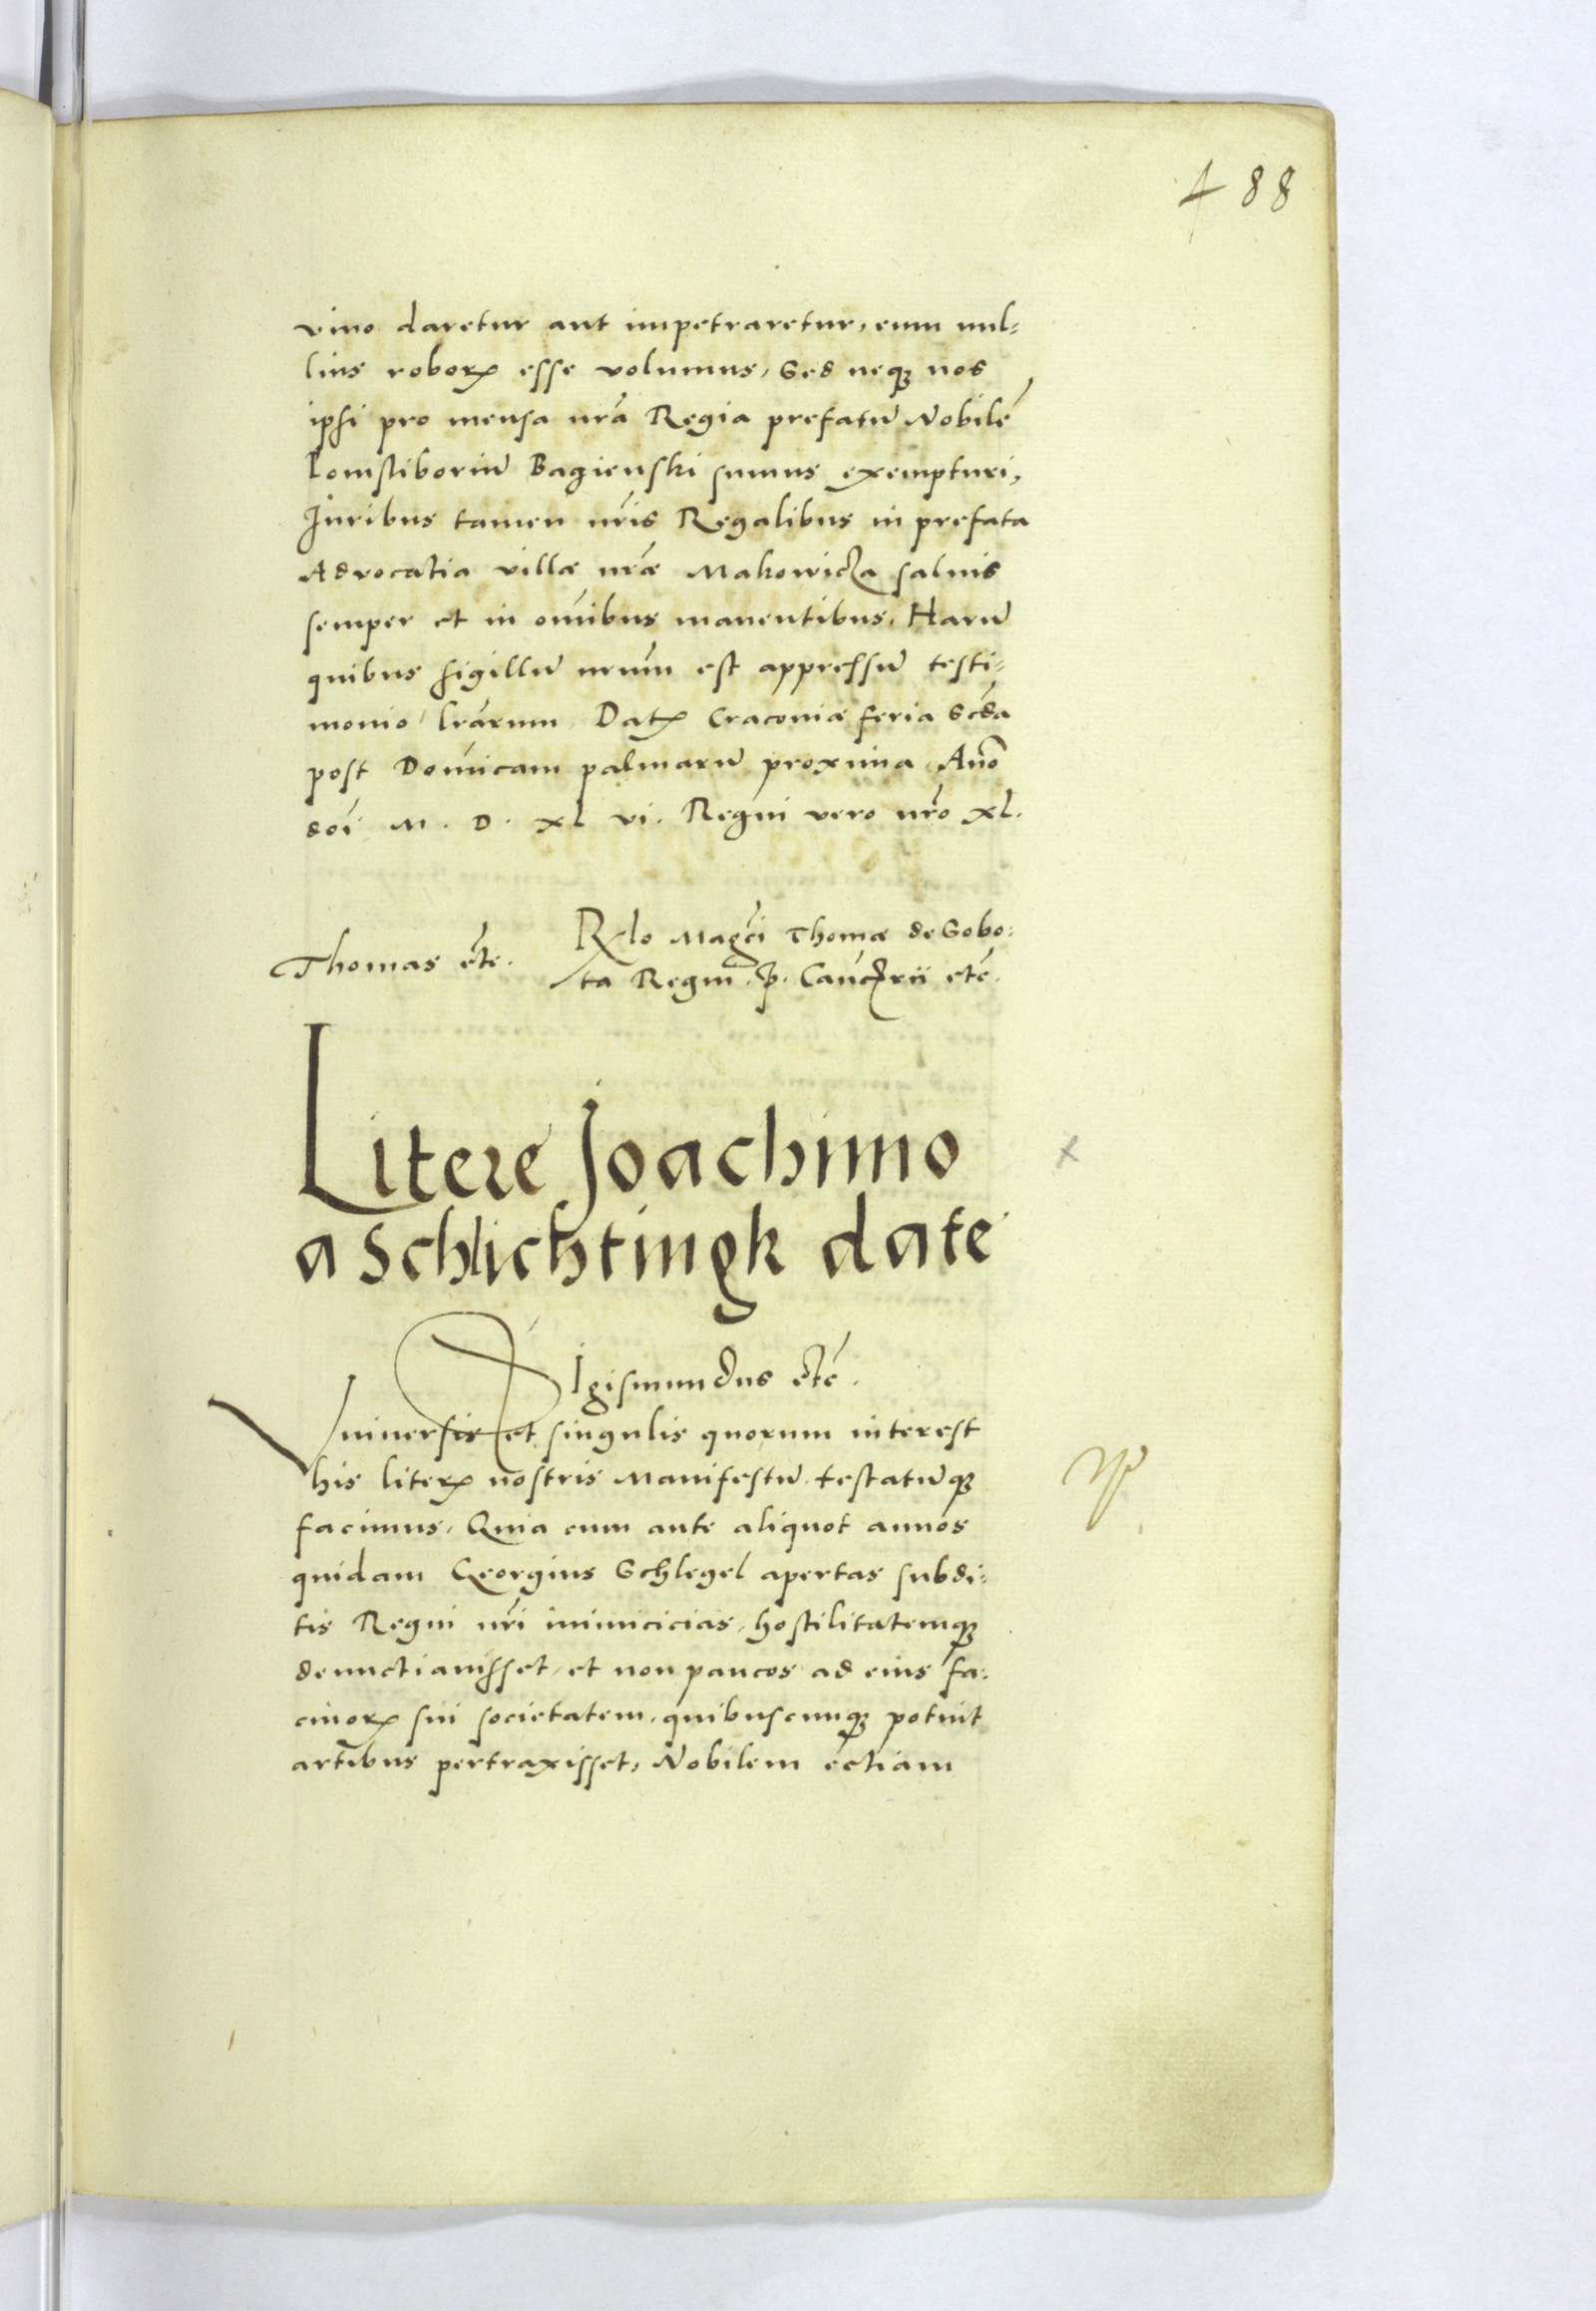 488
vivo daretur aut impetraretur, eum nul=
lius roborꝭ esse volumus, Sed neqꝫ nos
ipsi pro mensa nr̃a Regia prefatũ Nobilẽ
Comstiboriũ Bagienski sumus exempturi,
Juribus tamen nr̃is Regalibus in prefata
Advocatia villæ nr̃æ Makowicza salvis
semper et in om̃ibus manentibus, Harũ
quibus sigillũ nrũm est appressũ testi=
monio lr̃arum. Datꝭ Craconiæ feria Scd̃a
post Dom̃icam palmarũ proxima Año
dõi M. D. xl vi. Regni vero nr̃o xl.
Thomas etc̃.
Rlo Magc̃i Thomæ de Sobo=
ta Regni .p. Canc̃rii etc̃.
Litere Joachimo
a Schlichtingk date
Sigismundus etc̃.
Universis et singulis quorum interest
his literꝭ nostris Manifestũ testatũqꝫ
facimus, Quia cum ante aliquot annos
quidam Georgius Schlegel apertas subdi=
tis Regni nr̃i inimicicias, hostilitatemqꝫ
denuctiavisset, et non paucos ad eius fa=
cinorꝭ sui societatem, quibuscunqꝫ potuit
artibus pertraxisset, Nobilem ectiam